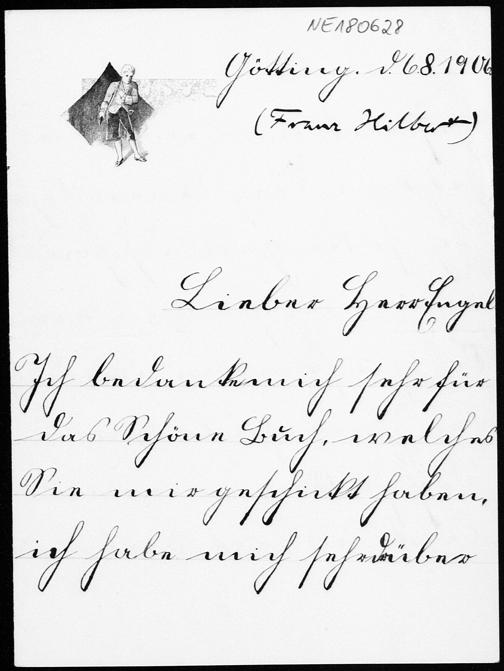 NE180628
Götting. d. 6.8.1906
(Franz Hilbert)
Lieber Herr Engel
Ich bedanke mich sehr für
das Schöne Buch, welches
Sie mir geschickt haben,
ich habe mich sehr drüber